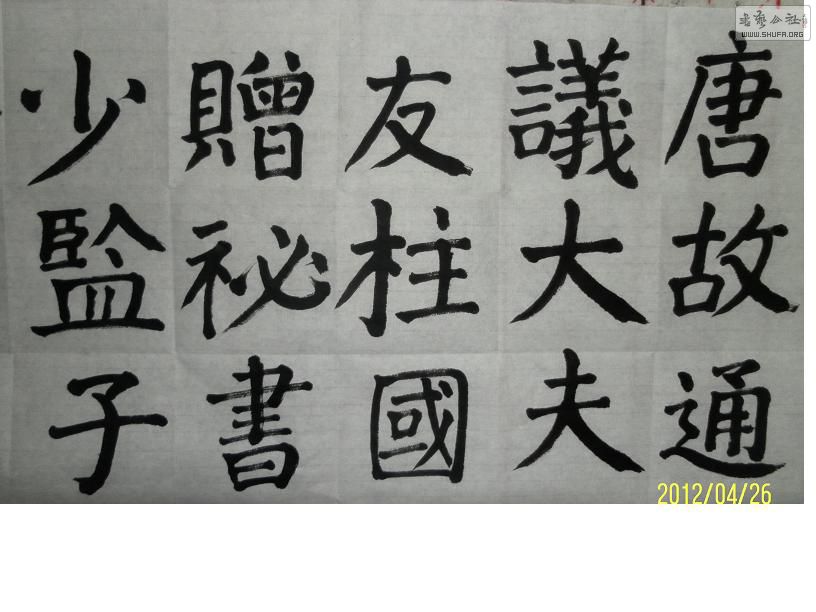 唐故通
議大夫
友柱國
贈祕書
少監子
書藝公社
WWW.SHUFA.ORG
2012/04/26